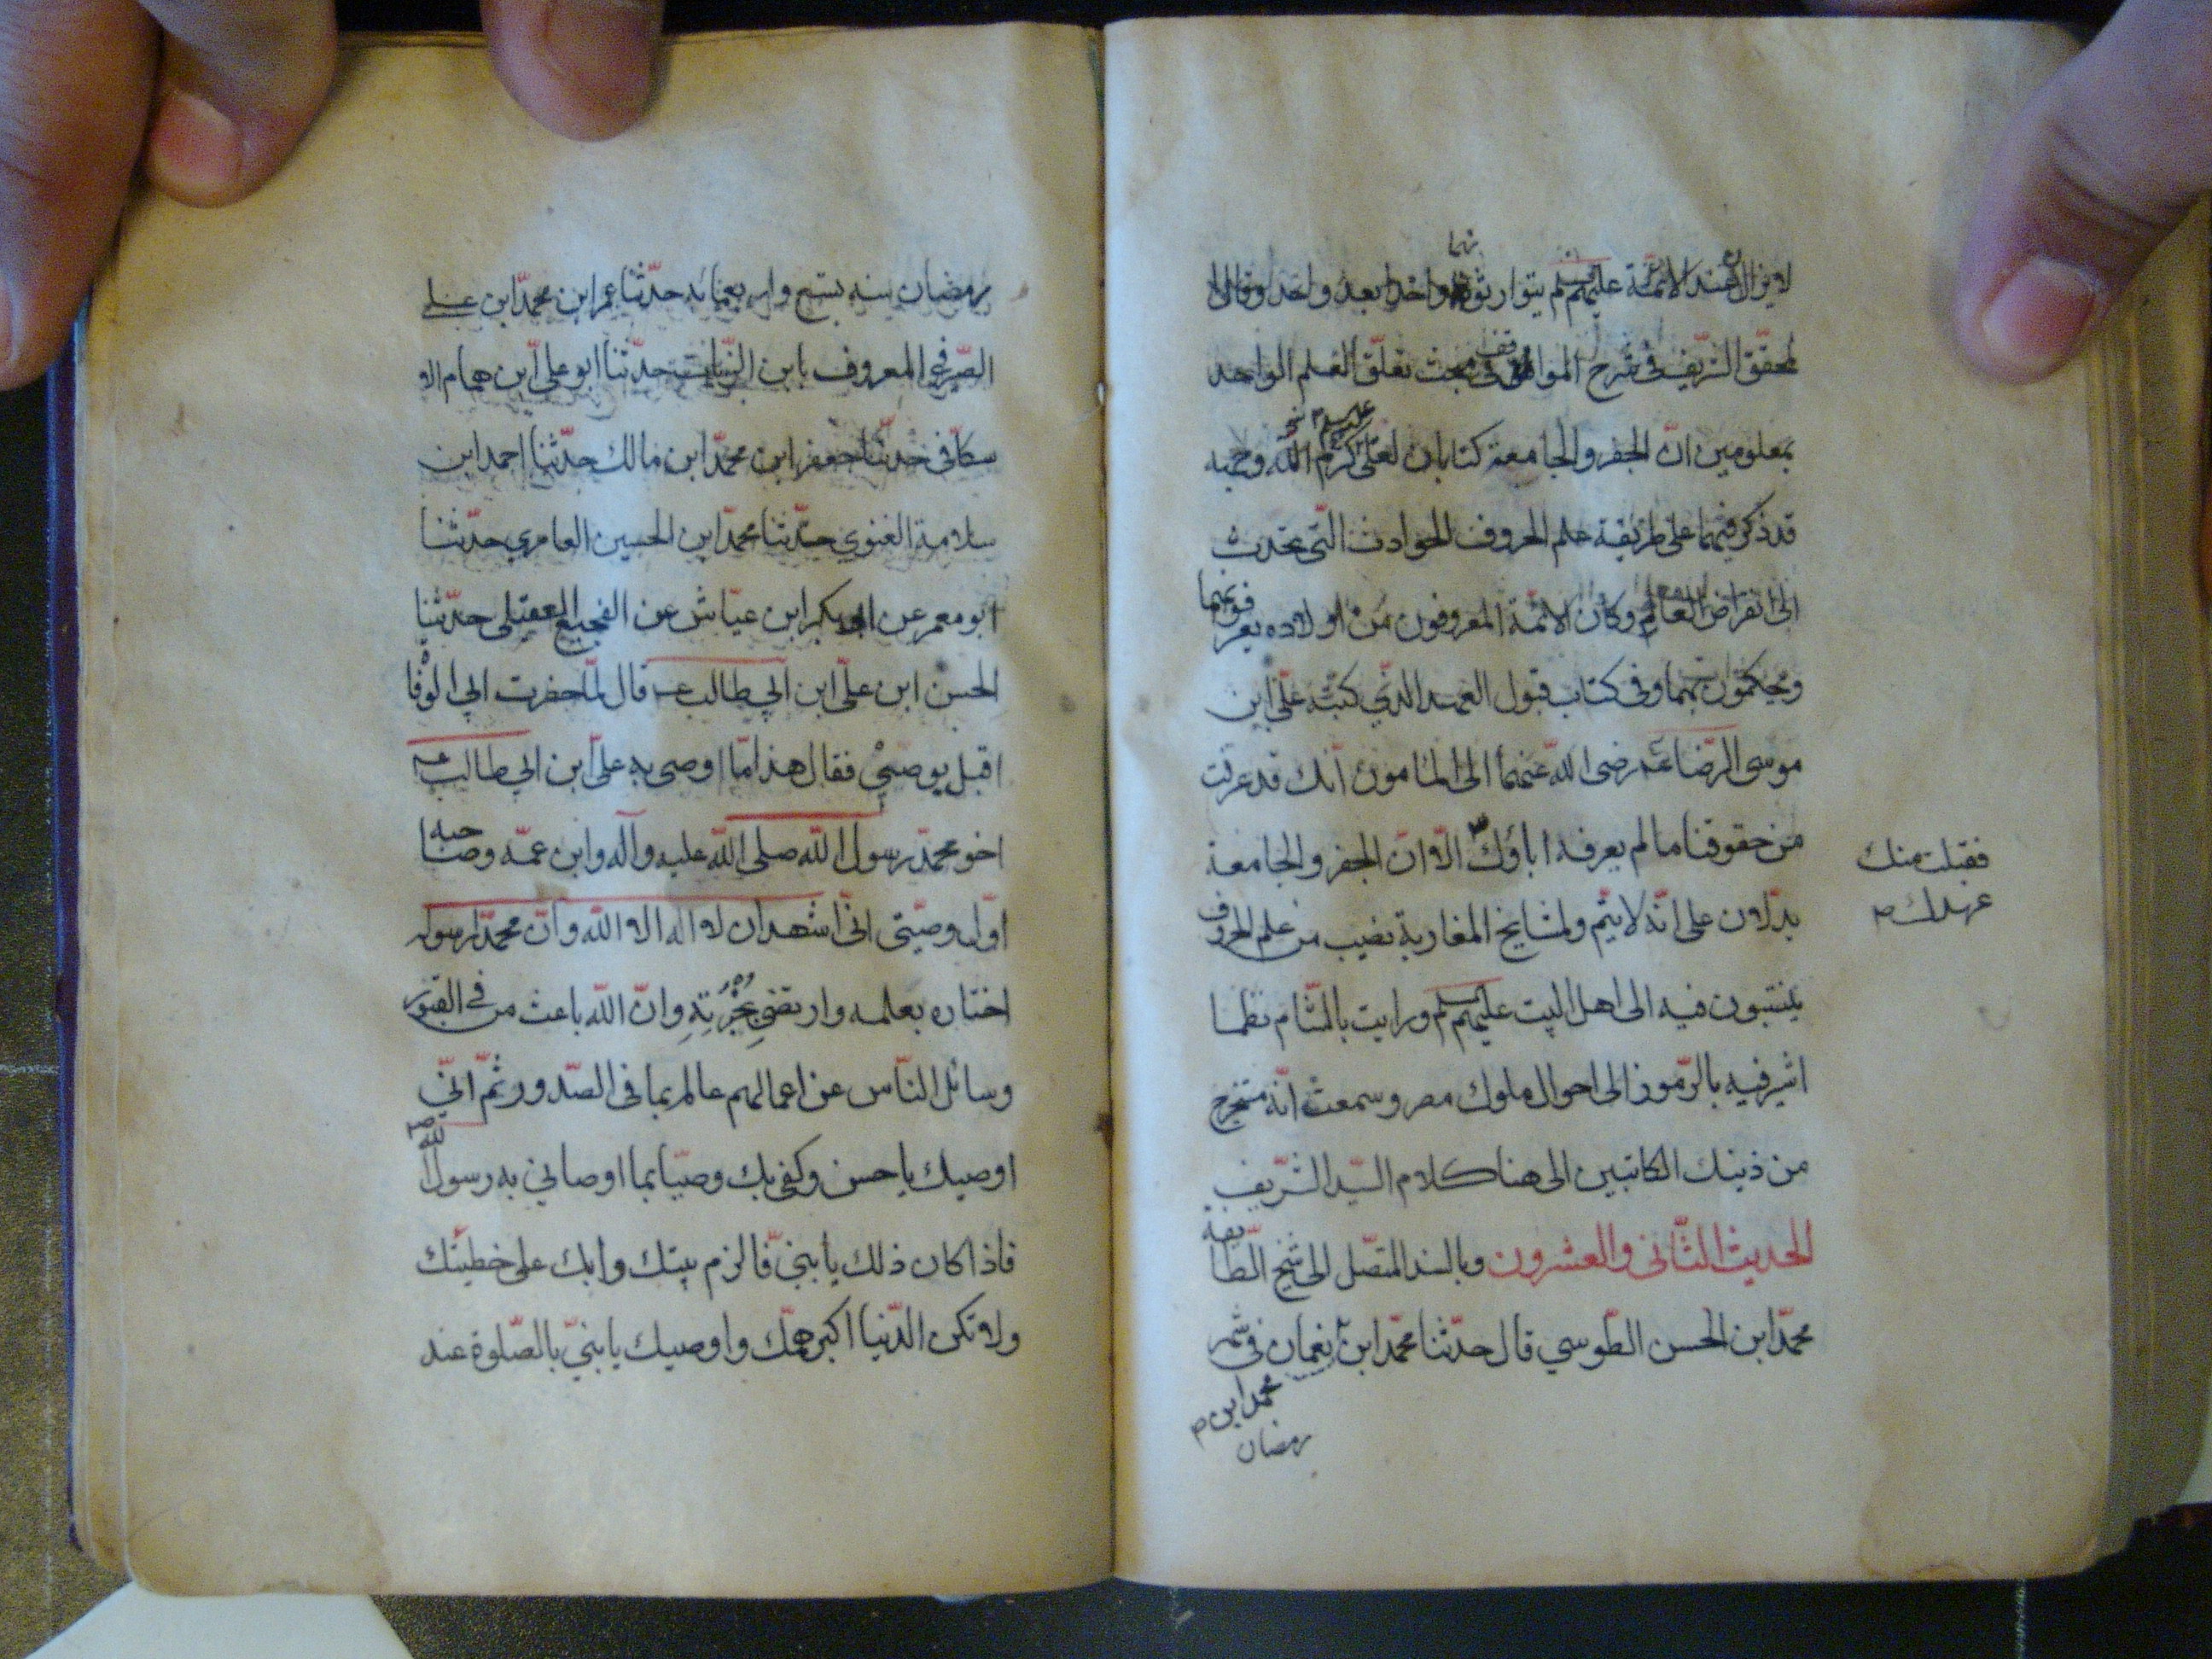 لا يزالان عند الائمّة عليهم السلم يتوارثونهما واحدا بعد واحد او قال
المحقّق الشّريف فى شرح المواقف فى مبحث تعلّق العلم الواحد
بمعلومين انّ الجفر والجامعة كتابان لعلى كرّم الله وجهه
قد ذكر فيهما على طريقة علم الحروف الحوادث التّى تحدث
الى انقراض العالم وكان الائمّة المعروفون من اولاده يعرفونهما
ويحكمون بهما وفى كتاب قبول العهد الذّي كتبه علىّ ابن
موسى الرّضا رضى اللّه عنهما الى المامون انّك قد عرفت
من حقوقنا ما لم يعرفه اباؤك الّا انّ الجفر والجامعة
فقبلت منك
عهدك صح
يدّلان على انّه لا يتمّ ولمشايخ المغاربة نصيب من علم الحروف
ينتسبون فيه الى اهل البيت عليهم السلم ورايت بالشّام نظما
اشير فيه بالرّموز الى احوال ملوك مصر وسمعت انّه مستخرج
من ذينك الكتابين الى هنا كلام السّيد الشّريف
الحديث الثّانى والعشرون وبالسند المتصّل الى شيخ الطّايفة
محمّد ابن الحسن الطّوسي قال حدّثنا محمّد ابن نعمان فى شهر
محمد ابن صح
رمضان
رمضان سنه تسع واربعمائه حدّثنا عمر ابن محمّد ابن على
الصّيرفى المعروف بابن الزّيات حدّثنا ابو علىّ ابن همام الا
سكافى حدّثنا جعفر ابن محمّد ابن مالك حدّثنا احمد ابن
سلامة الغنوي حدّثنا محمّد ابن الحسين العامري حدّثنا
ابو معمر عن ابى بكر ابن عيّاش عن الفجيع العقيلى حدّثنا
الحسن ابن علىّ ابن ابي طالب قال لمّا حضرت ابي الوفا
اقبل يوصىي فقال هذا مّا اوصى به علىّ ابن ابي طالب
اخو محمّد رسول اللّه صلى اللّه عليه وآله وابن عمّه وصاحبه
اوّل وصيّتى انّى اشهد ان لا اله الا اللّه وانّ محمّدا رسوله
اختاره بعلمه وارتضى خيرته وانّ اللّه باعث من في القبور
وسائل النّاس عن اعمالهم عالم بما فى الصّدور ثمّ انّي
اوصيك يا حسن وكفى بك وصيّا بما اوصاني به رسول اللّه
فاذا كان ذلك يا بنيّ فالزم بيتك وابك على خطيئتك
ولا تكن الدّنيا اكبر همّك واوصيك يا بنيّ بالصّلوة عند